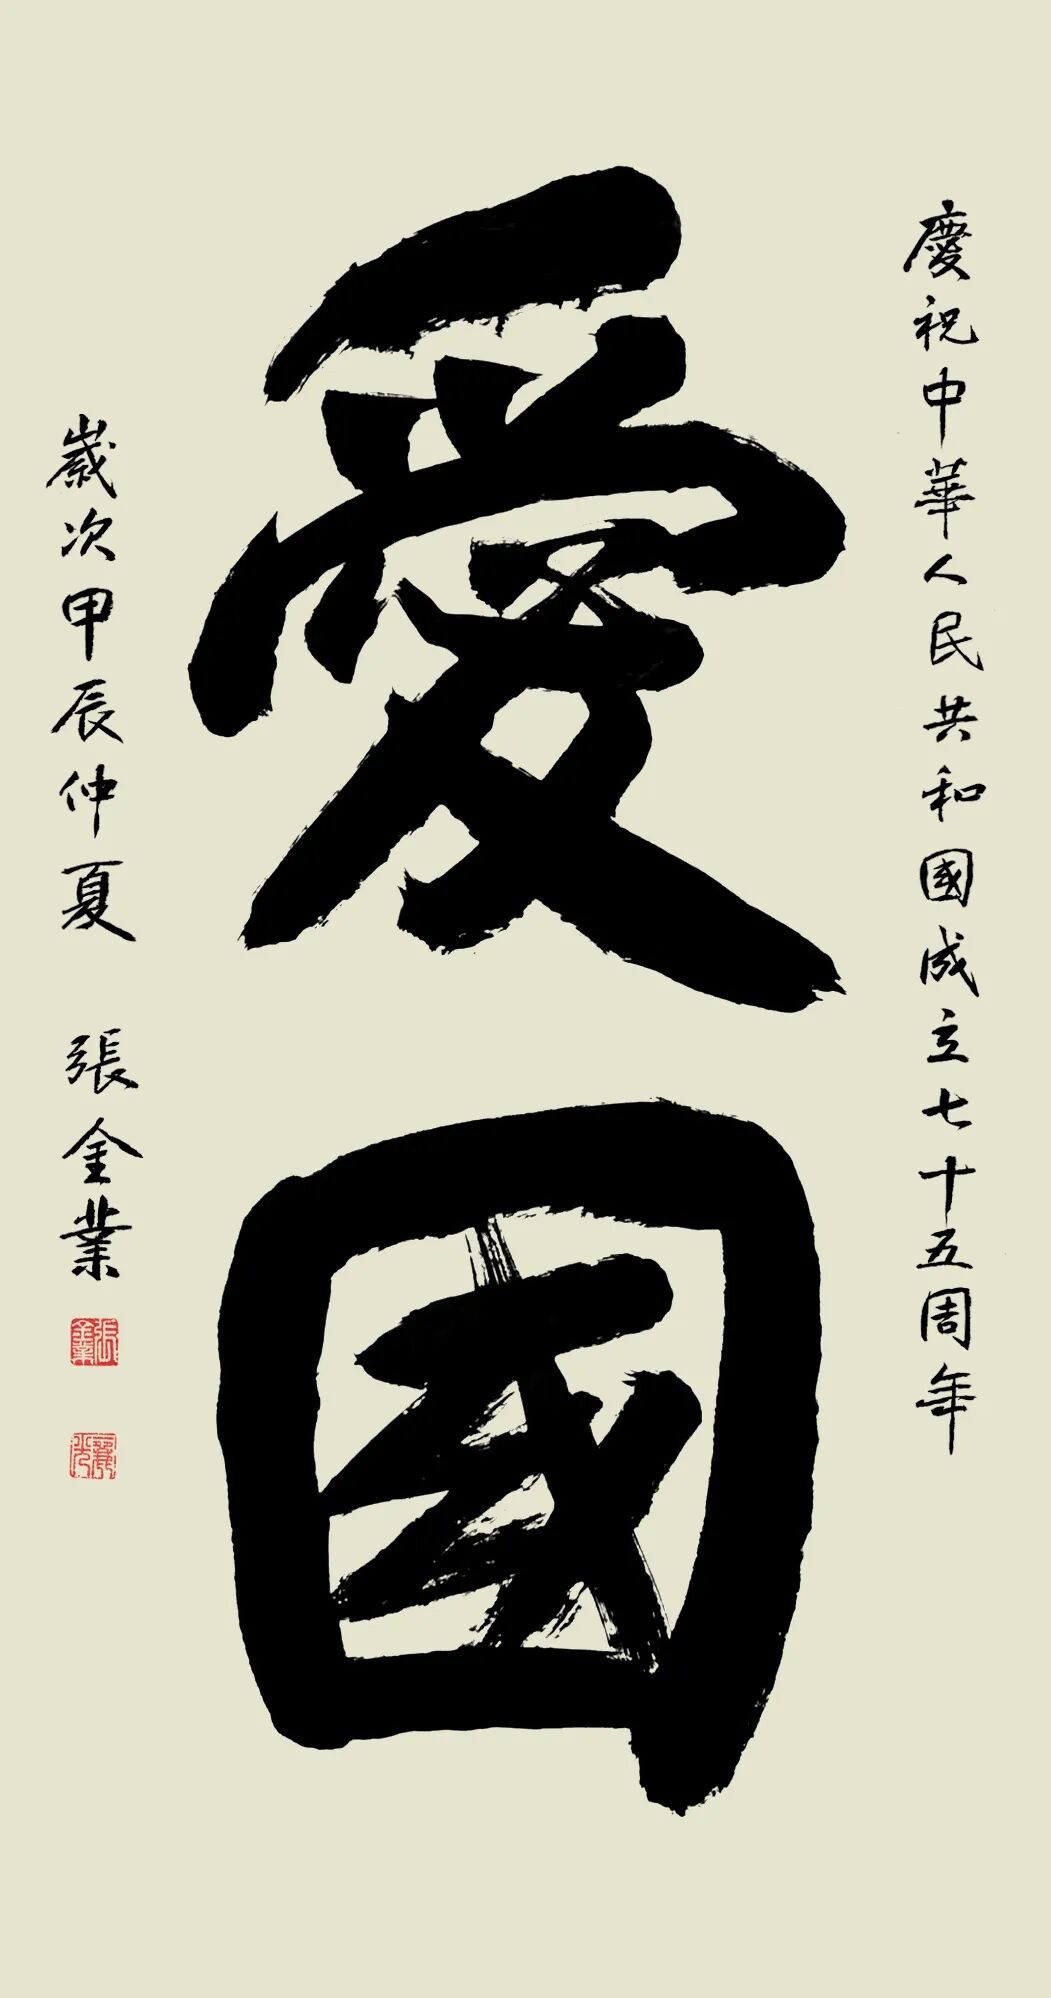 慶祝中華人民共和國成立七十五周年
愛國
歲次甲辰仲夏 張金業
張金業